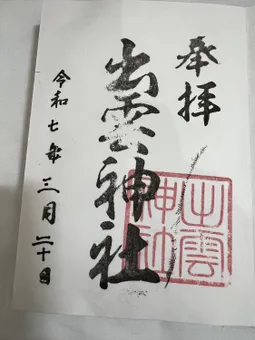 奉拝
出雲神社
出雲
神社
令和七年三月二十日